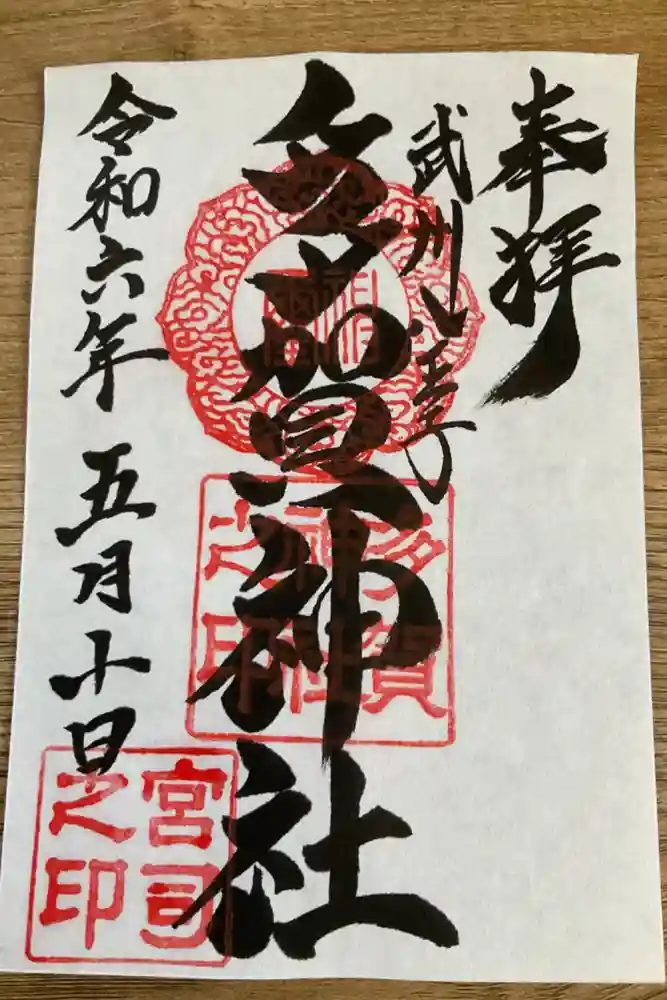 奉拝
武州八王子
多賀神社
令和六年 五月十日
多賀
神社
之印
宮司
之印